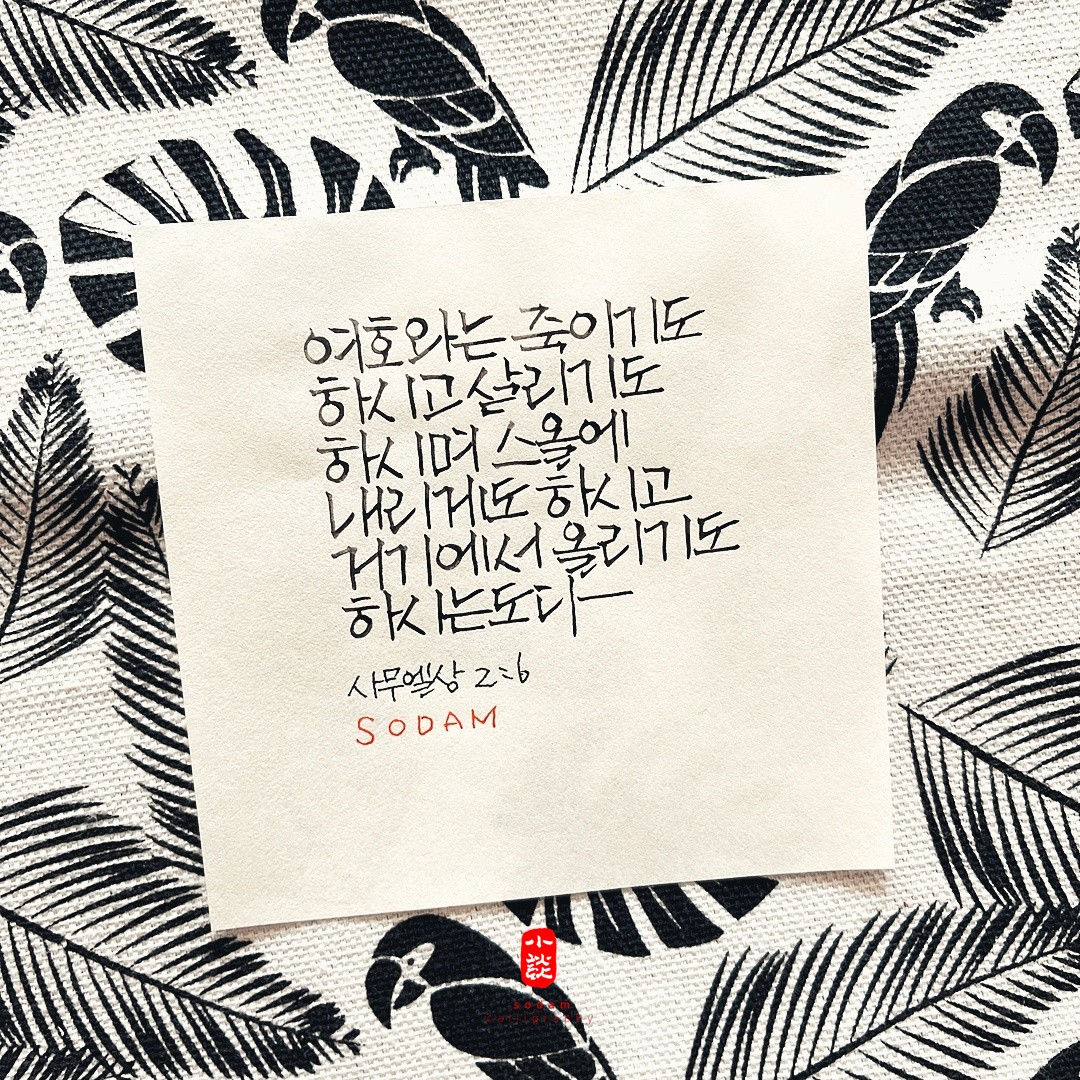 여호와는 죽이기도
하시고 살리기도
하시며 스올에
내리게도 하시고
거기에서 올리기도
하시는도다
사무엘상 2:6
SODAM
小談
sodam
calligraphy